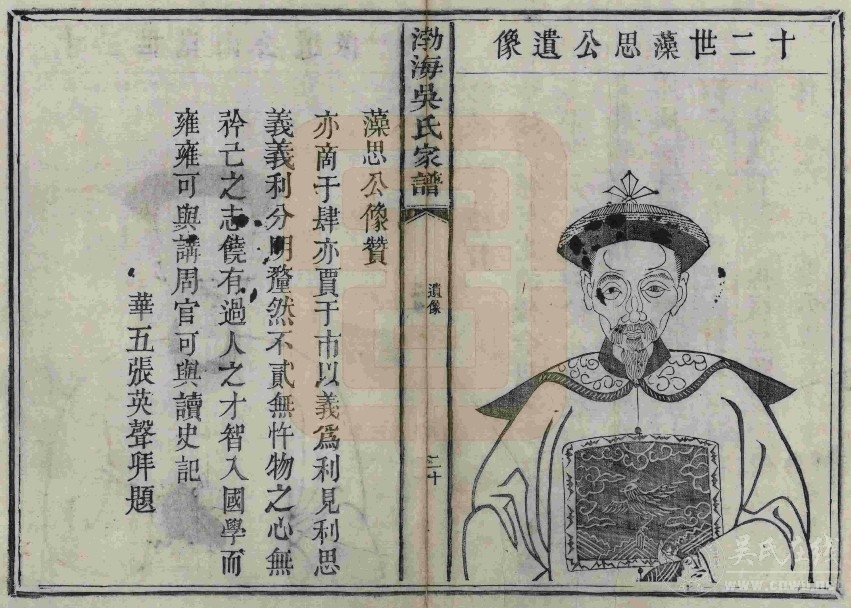 十二世藻思公遺像
渤海吳氏家譜
遺像
二十
藻思公像贊
亦商于肆亦賈于市以義爲利見利思
義義利分明釐然不貳無忤物之心無
矜己之志饒有過人之才智入國學而
雍雍可與講周官可與讀史記
華五張英聲拜題
吳氏在线